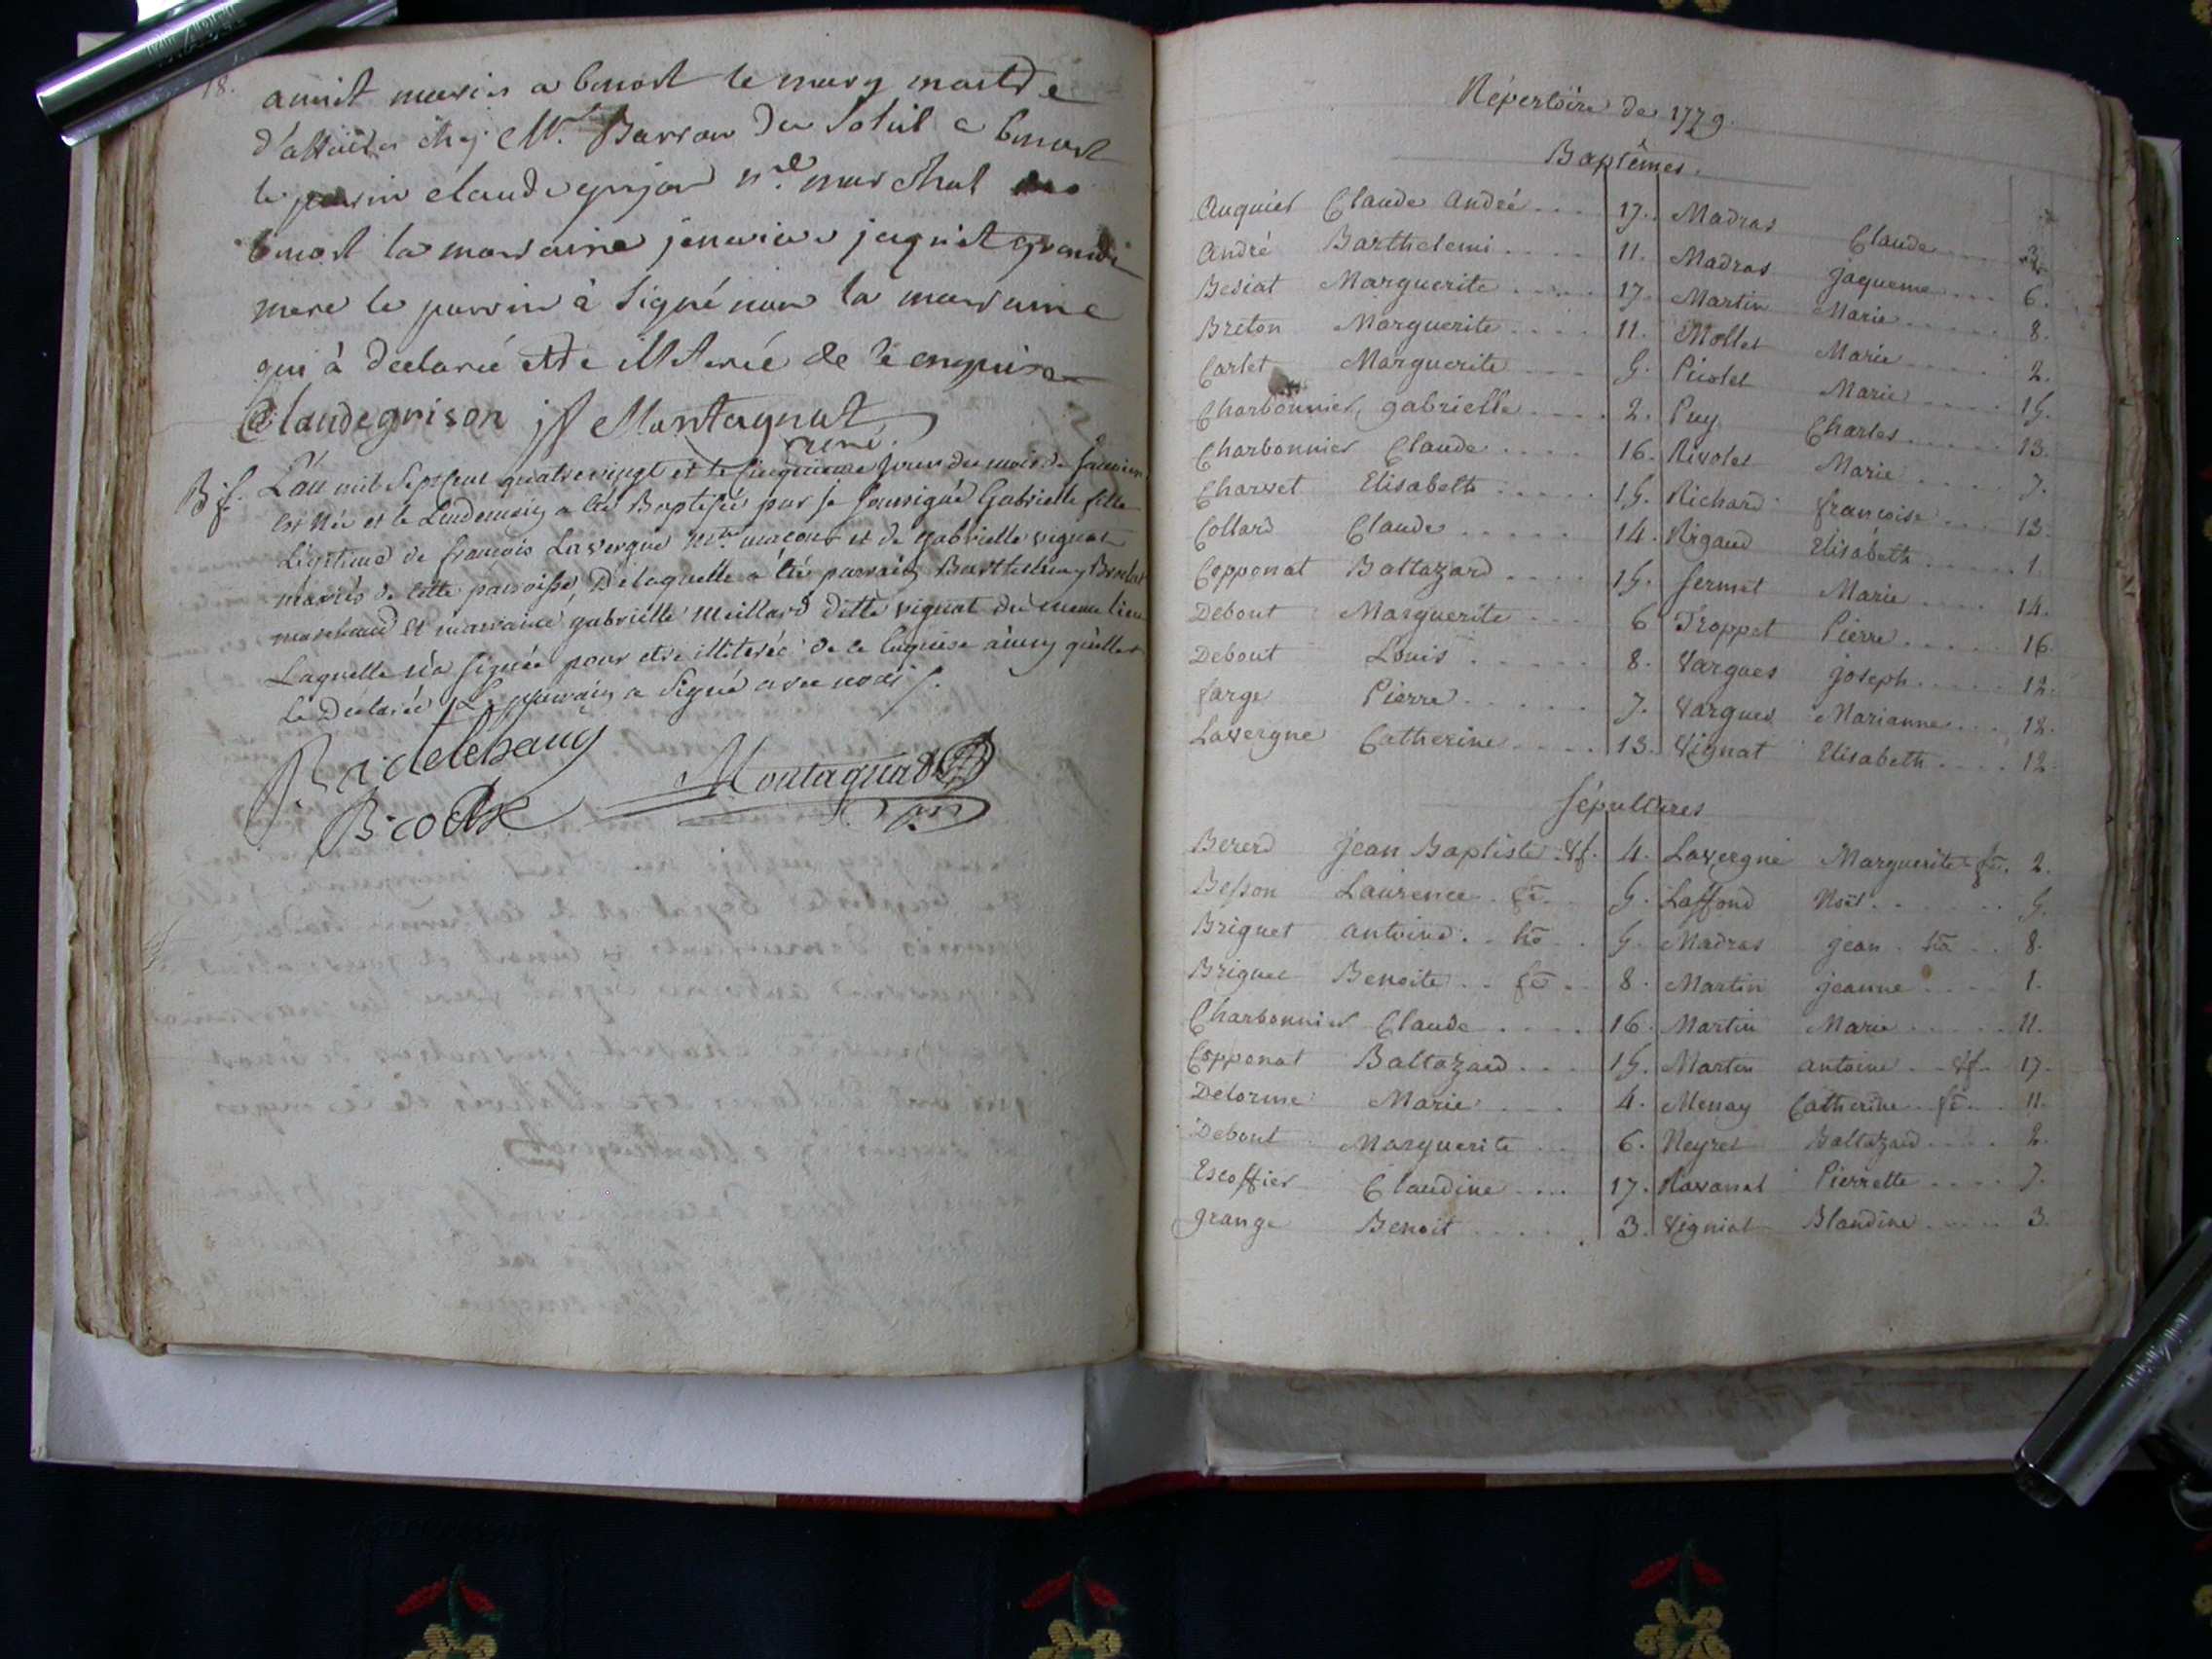 18.
mariés a le mary
d'affaires chez Mr. Barrou du Soleil a
le parin claude grison marchal
la marraine jaquet grande
mere le parrin à signé non la marraine
qui à declaré être illiterée de ce enquise
Claudegrison Montagnat
curé.
L'an mil sept cent quatrevingt et le cinquieme jour du mois de janvier
est née et le lendemain a été Baptisée par je soussigné Gabrielle fille
Légitime de françois Lavergne me maçon et de gabrielle vignat
mariés de cette paroisse, De laquelle a été parrain Barthelemy
marchand et marraine gabrielle Meillard ditte vignat du meme lieu
Laquelle n'a signée pour etre illiterée de ce enquise ainsy qu'elle
l'a Déclarée Le parrain a signé avec nous
Montagnat
Répertoire de 1779.
Baptêmes.
Auquier Claude André . . . 17. Madras Claude . . .
André Barthelemi . . . . 11. Madras Jaqueme . . . 6.
Besiat Marguerite . . . . 17. Martin Marie . . . . . 8.
Breton Marguerite . . . . 11. Mollet Marie . . . . . 2.
Carlet Marguerite . . . 5. Picolet Marie . . . . 15.
Charbonnier gabrielle . . . . 2. Puy Charles . . . . . 13.
Charbonnier Claude . . . . 16. Rivolet Marie . . . . 7.
Charvet Elisabeth . . . . . 15. Richard francoise . . . 13.
Collard Claude . . . . . 14. Rigaud Elisabeth . . . . . 1.
Copponat Baltazard . . . . 15. Sermet Marie . . . . 14.
Debout Marguerite . . . 6 Troppet Pierre . . . . . 16.
Debout Louis . . . . . 8. Vargues joseph . . . . . 12.
farge Pierre . . . . . 7. Vargues Marianne . . . 12.
Lavergne Catherine . . . . 13. Vignat Elisabeth . . . . 12.
Sépultures
Bererd Jean Baptiste . Vf. 4. Lavergne Marguerite fe. 2.
Besson Laurence . fe. 5. Laffond Noël . . . . . . 5.
Briguet antoine . . ho . . 5. Madras jean . ho . . 8.
Briguet Benoite . . fe . . 8. Martin jeanne . . . . 1.
Charbonnier Claude . . . . 16. Martin Marie . . . . . 11.
Copponat Baltazard . . . 15. Martin antoine . . Vf. 17.
Delorme Marie . . . . 4. Menay Catherine . fe. . 11.
Debout Marguerite . . . 6. Neyret Baltazard . . . . 2.
Escoffier Claudine . . . . 17. Ravanat Pierrette . . . . 7.
grange Benoit . . . . . 3. Vigniat Blandine . . . . . 3.